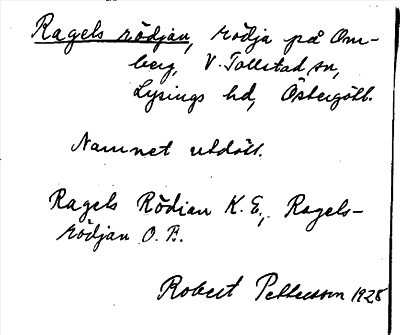 Ragels rödjan, rödja på Om-
berg, V. Tollstad sn,
Lysings hd, Östergötl.
Namnet utdött.
Ragels Rödian K. E., Ragels-
rödjan O. A.
Robert Pettersson 1928